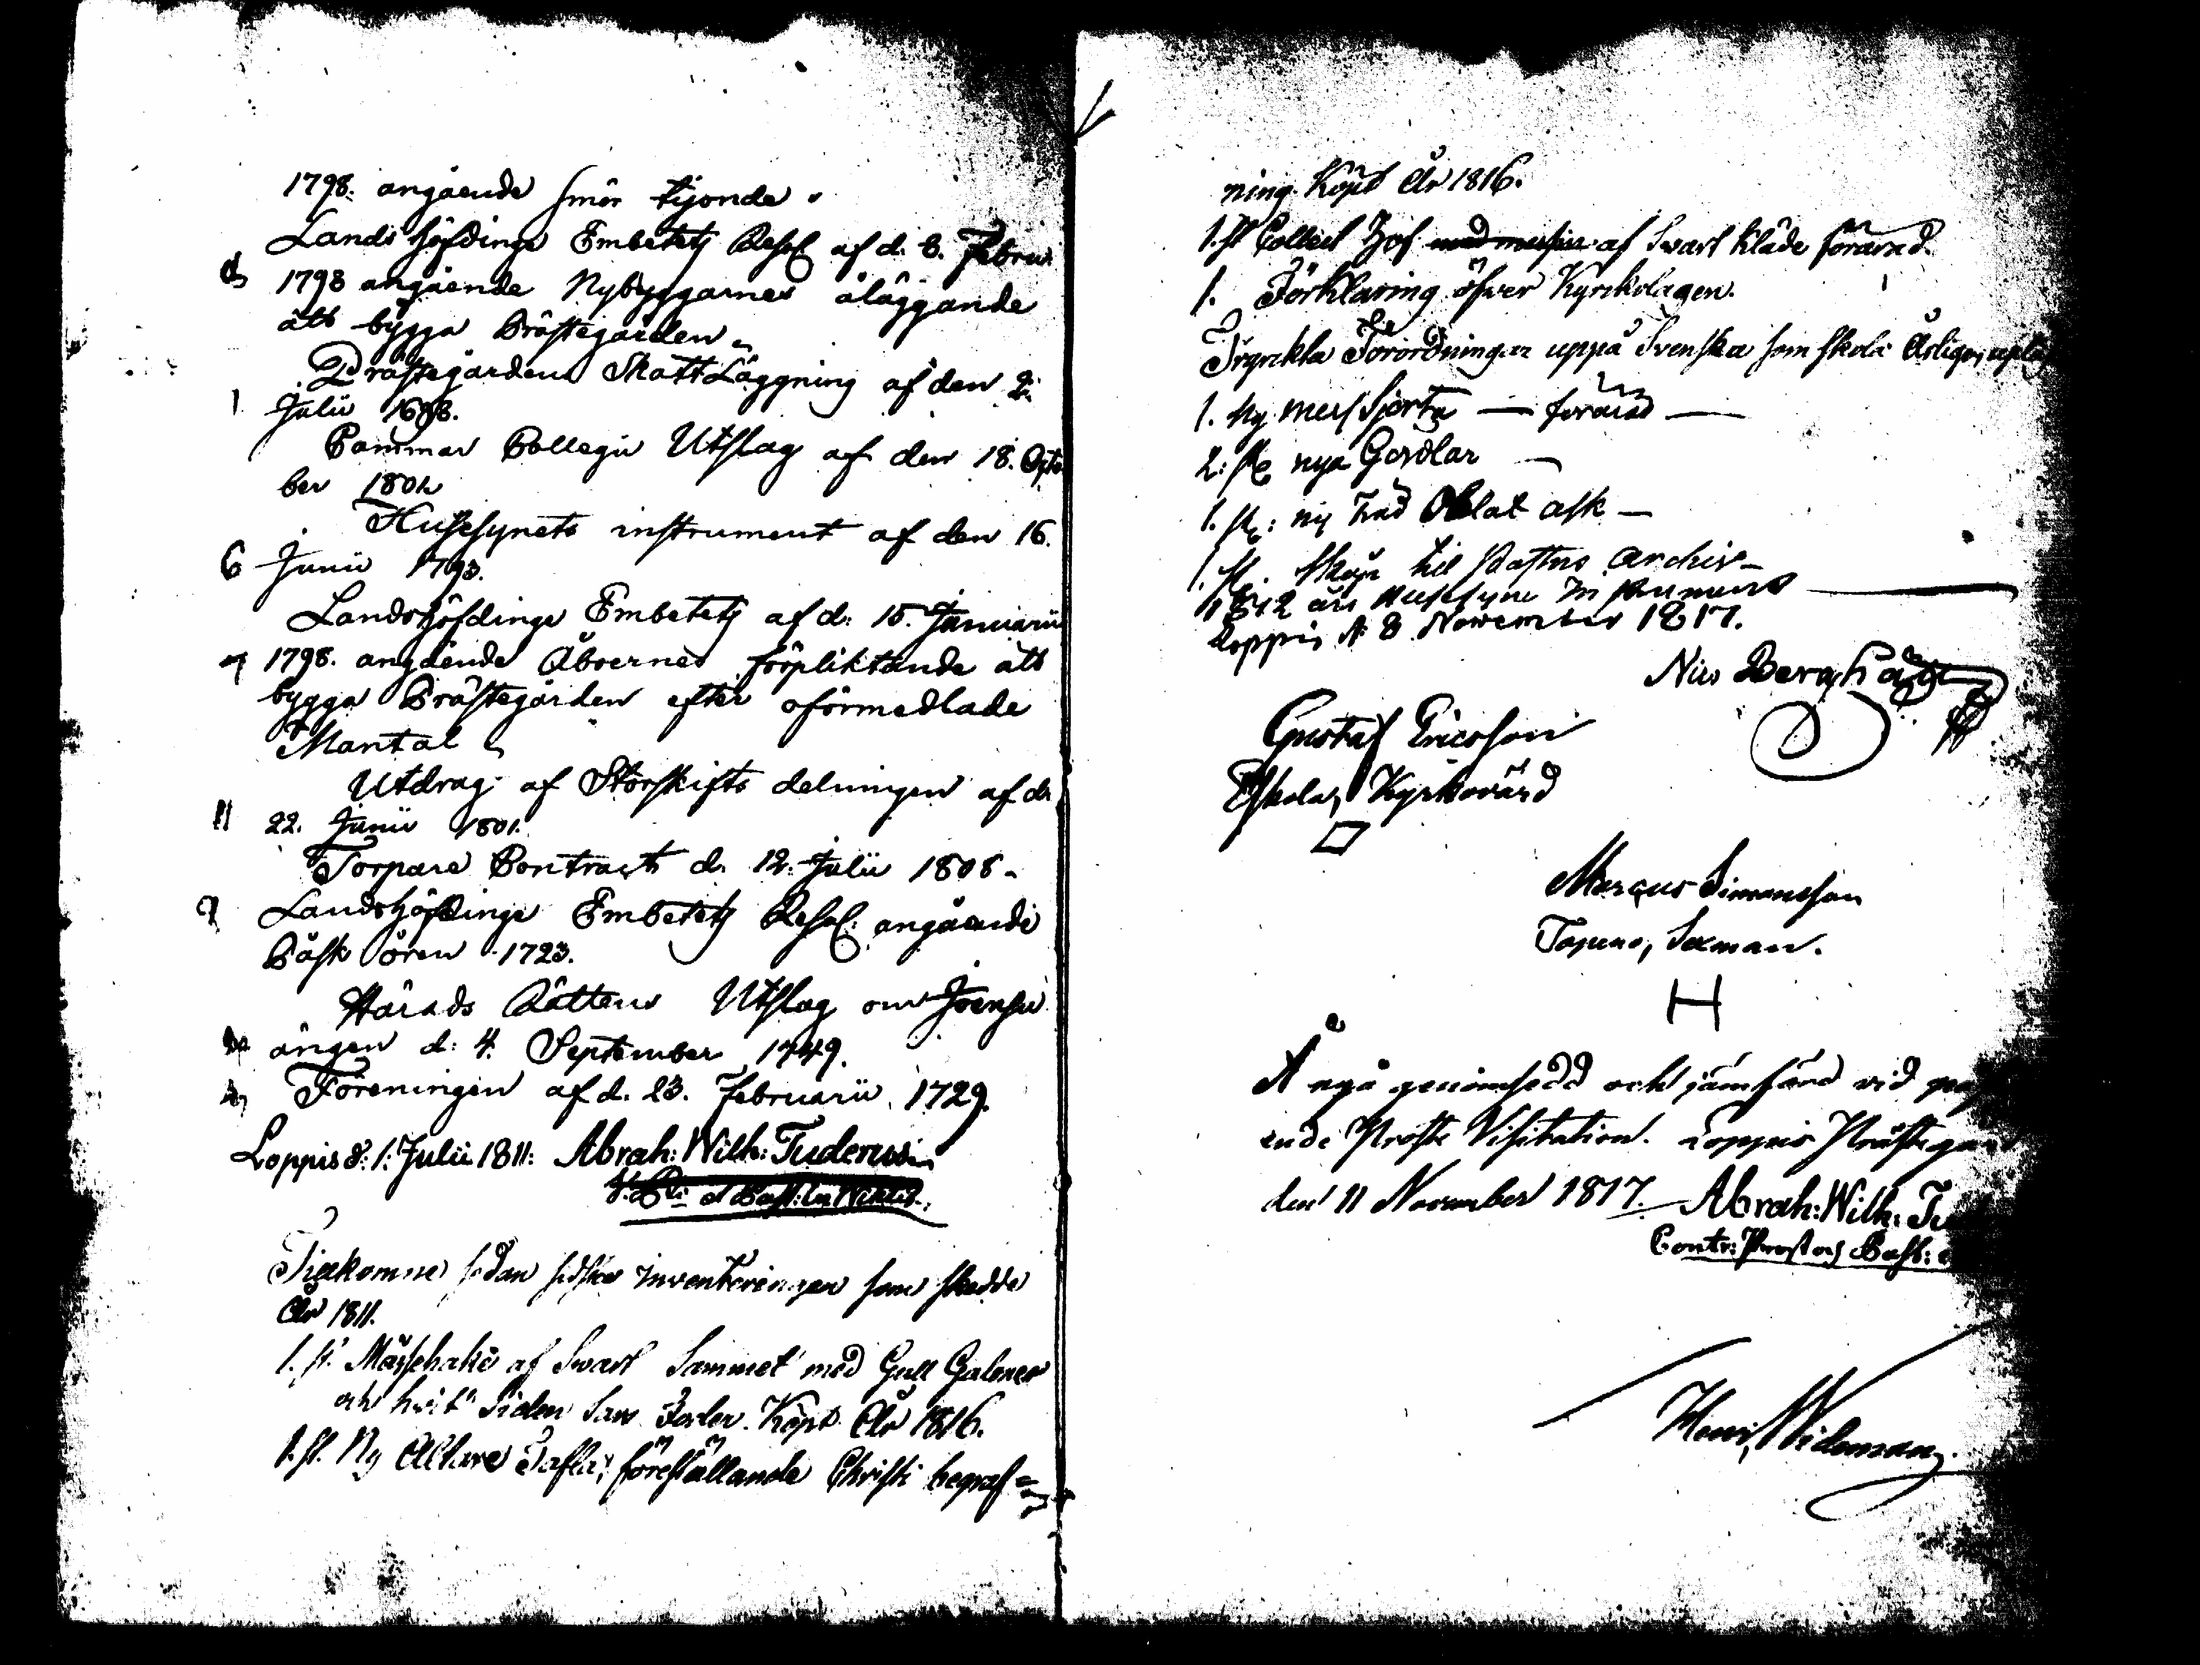 1798. angående smör tijonde
Landshöfdinge Embetets Resol af d. 8. Febru
1798 angående Nybyggarnes åläggande
att bygga Prästegården
Prästegårdens Skattläggning af den 2
Julii 1688.
Cammar Collegii Utslag af den 18. Octo
ber 1802
Husesynets instrument af den 16.
6 Junii 1793.
Landshöfdinge Embetets af d: 15. Januarii
1798. angående Åboernes förpliktande att
bygga Prästegården efter oförmedlade
Mantal
Utdrag af Storskifts delningen af d.
11 22. Junii 1801.
Torpare Contract d. 12. Julii 1808
Landshöfdinge Embetets Resol: angående
Påsk ören 1723.
Härads Rättens Utslag om Joensu
ängen d: 4. September 1749.
Föreningen af d. 23. Februarii 1729.
Loppis d: 1: Julii 1811: Abrah: Wilh: Tuderus
Tillkomne sedan sidsta inventeringen som skedde
År 1811.
1. st. Mässhake af Swart Sammet med Gull Galoner
och hwit Siden Sars Foder. Köpt År 1816.
1. st. Ny Altare Tafla, föreställande Christi begraf=
ning Köpt År 1816.
1. st Collect Hof med messing af Swart kläde förärad.
1. Förklaring öfwer Kyrckolagen.
Tryckta Förordningar uppå Svenska som skola Årligen upläs
1. ny mess Sjorta — förärad —
2: st nya Gördlar —
1. st: ny träd Oblat ask —
1. st. Skåp til Pastors Archiv —
1812 års Husesyns Instrument —
Loppis d. 8 November 1817.
Nils Berghäll
Gustaf Ericsson
Eskola, Kyrkovärd
Marcus Simonsson
Topeno, Sexman.
H
Å nyo genomsedd och jämförd vid
ende Prosts Visitation. Loppis Prästegår
den 11 November 1817. Abrah: Wilh: Tu
Contr: Prost och Past:
Henr. Wideman